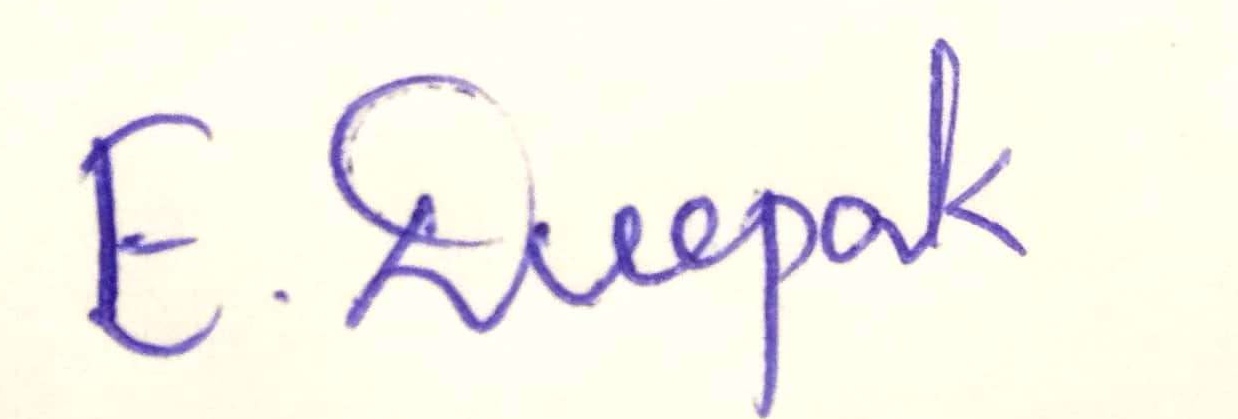 E. Deepak